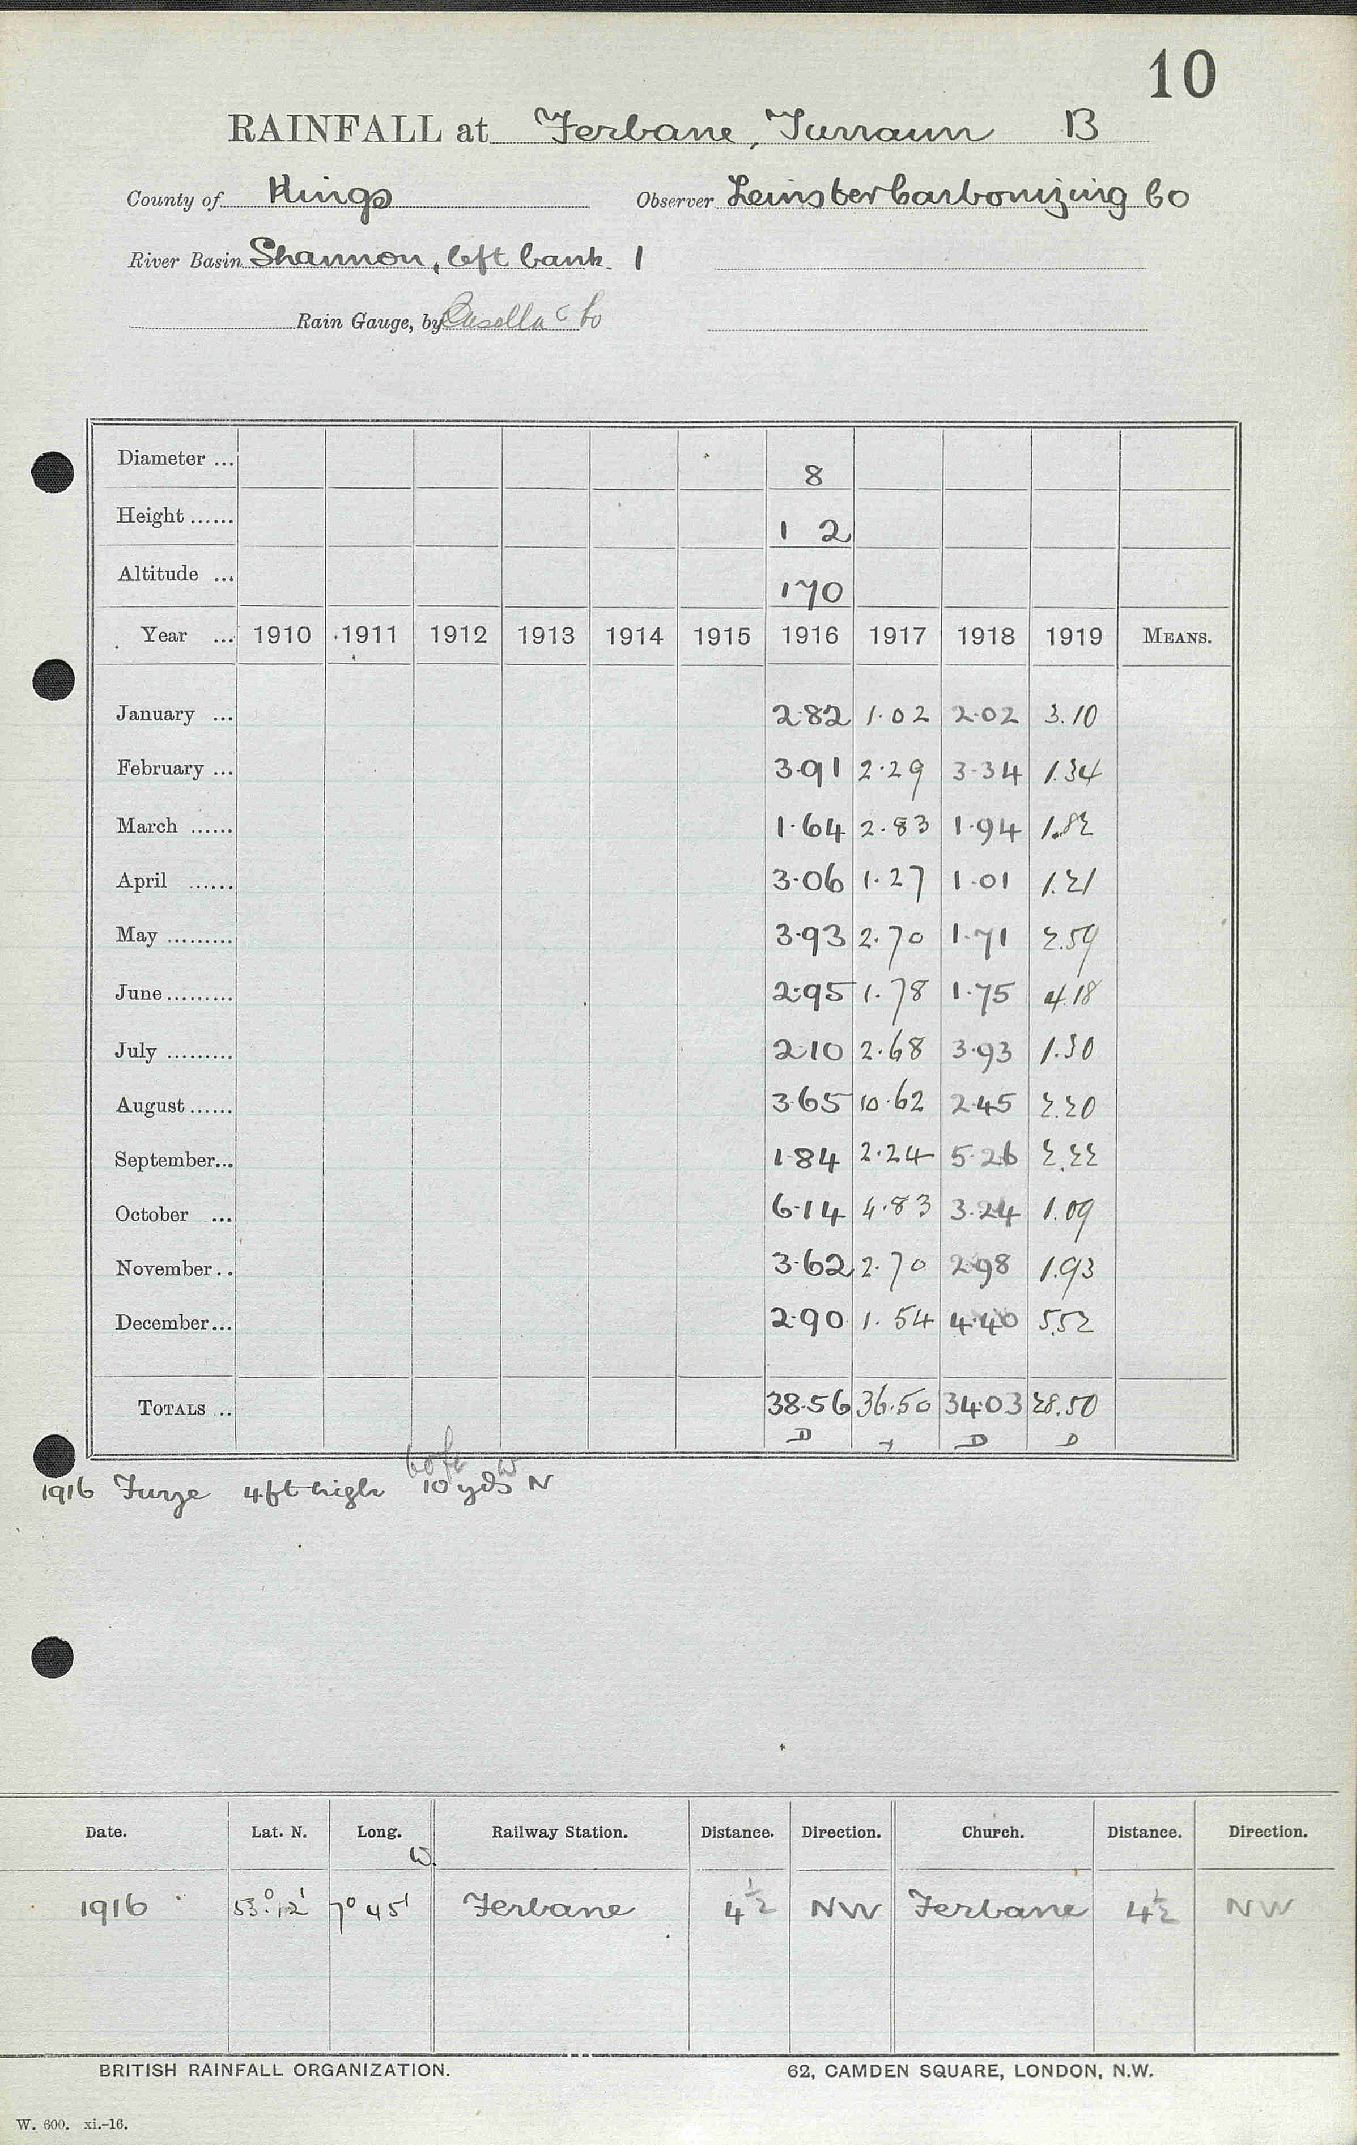 10
RAINFALL at Ferbane, Turraun B
County of Kings Observer Leinster Carbonizing Co
River Basin Shannon, left bank 1
Rain Gauge, by Casella & Co
Diameter ... 8
Height ...... 1 2
Altitude ... 170
Year ... 1910 1911 1912 1913 1914 1915 1916 1917 1918 1919 MEANS.
January ... 2.82 1.02 2.02 3.10
February ... 3.91 2.29 3.34 1.34
March ...... 1.64 2.83 1.94 1.82
April ...... 3.06 1.27 1.01 1.21
May ......... 3.93 2.70 1.71 2.59
June ......... 2.95 1.78 1.75 4.18
July ......... 2.10 2.68 3.93 1.30
August ...... 3.65 10.62 2.45 2.20
September... 1.84 2.24 5.26 2.22
October ... 6.14 4.83 3.24 1.09
November .. 3.62 2.70 2.98 1.93
December... 2.90 1.54 4.40 5.52
TOTALS .. 38.56 36.50 34.03 28.50
D D D
1916 Furze 4ft high 10 yds N
Date. Lat. N. Long. W. Railway Station. Distance. Direction. Church. Distance. Direction.
1916 53° 12' 7° 45' Ferbane 4½ NW Ferbane 4½ NW
BRITISH RAINFALL ORGANIZATION. 62, CAMDEN SQUARE, LONDON, N.W.
W. 600. xi.-16.